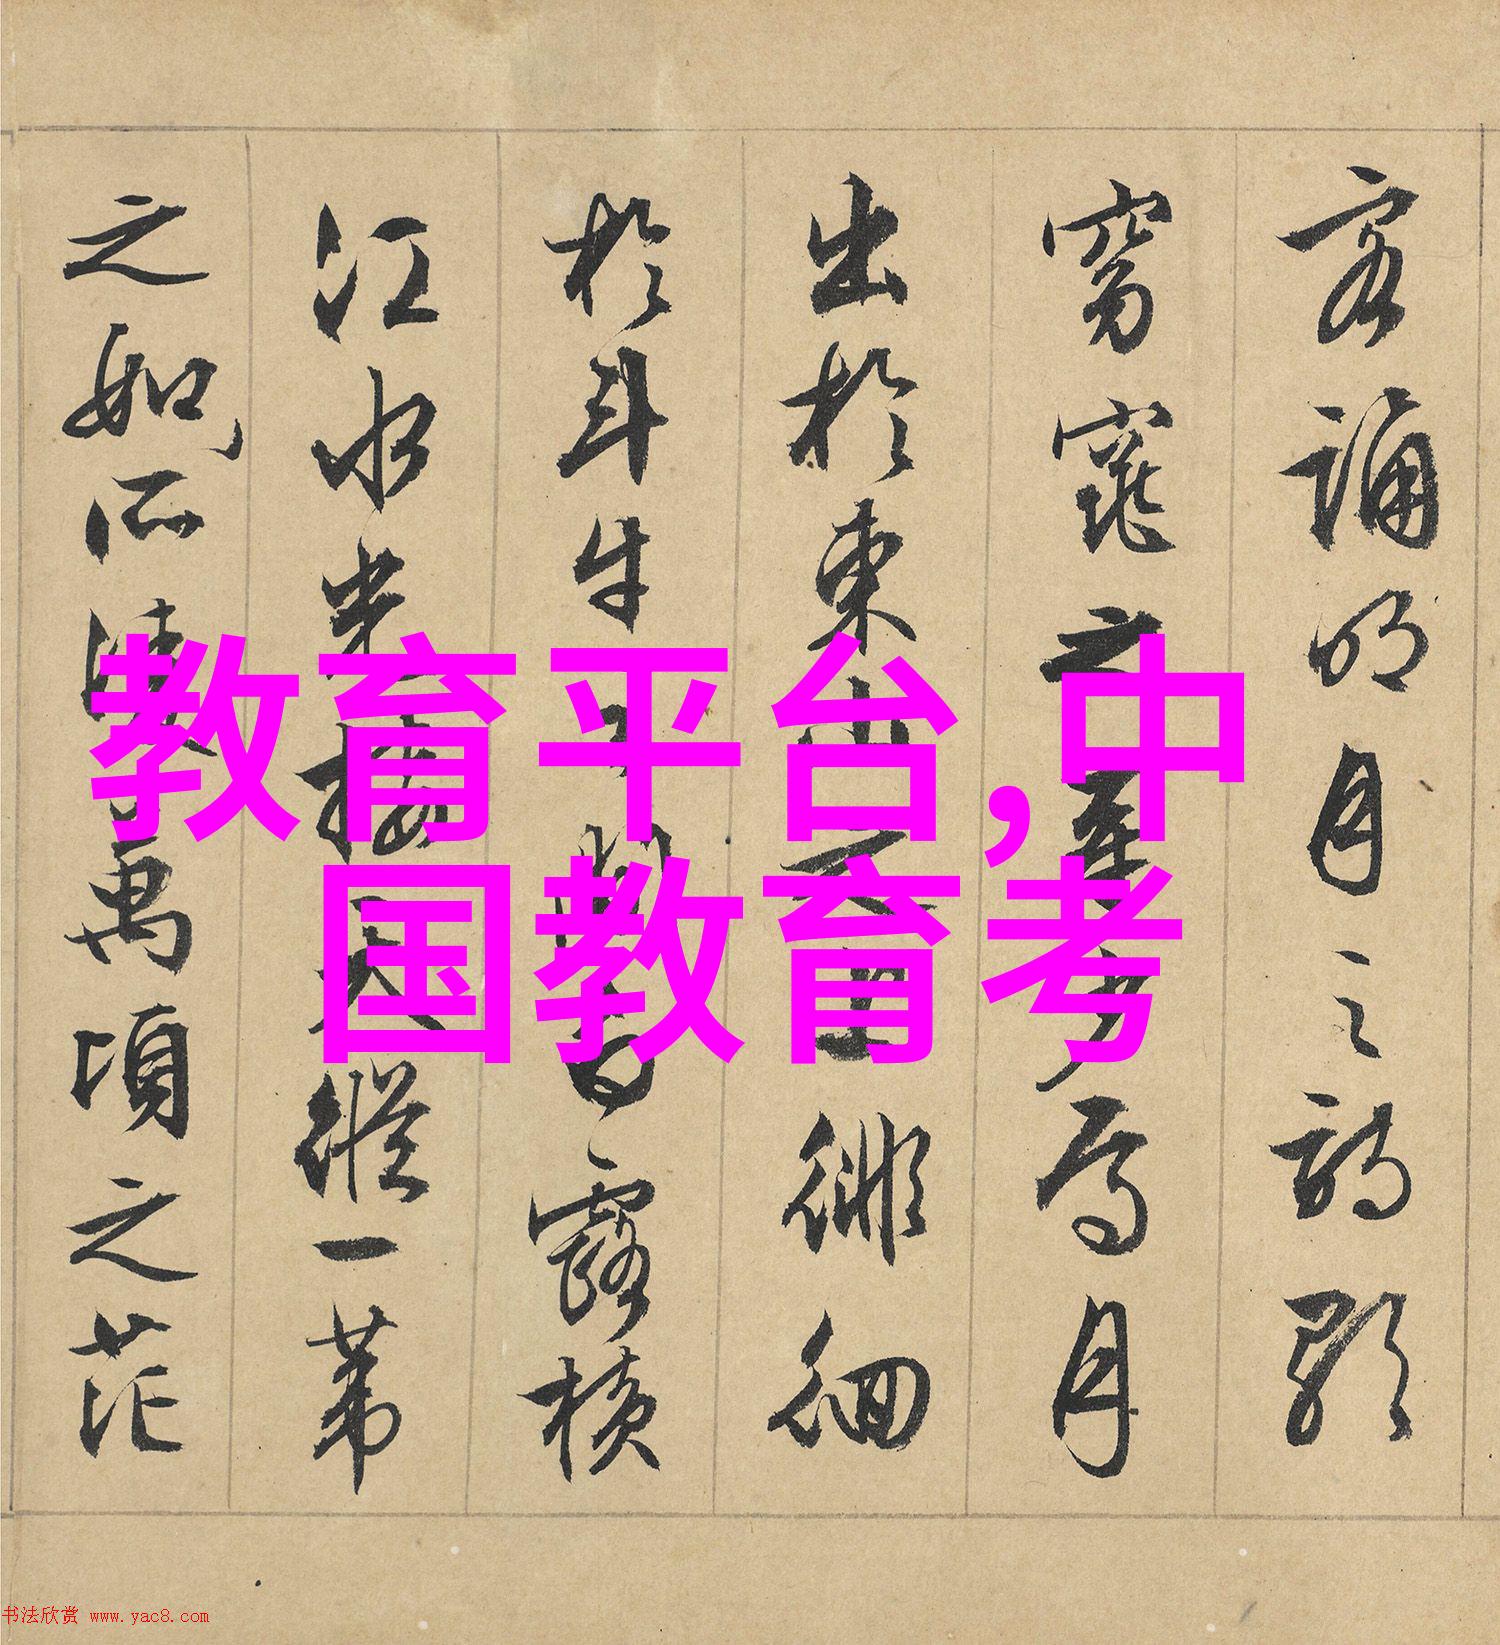 客誦明月之詩歌
窈窕之章少焉月
出於東山之上徘徊
於斗牛之間白露橫
江水光接天縱一葦
之如所淩萬頃之茫
教育平台,中
国教育考
书法欣赏 www.yac8.com